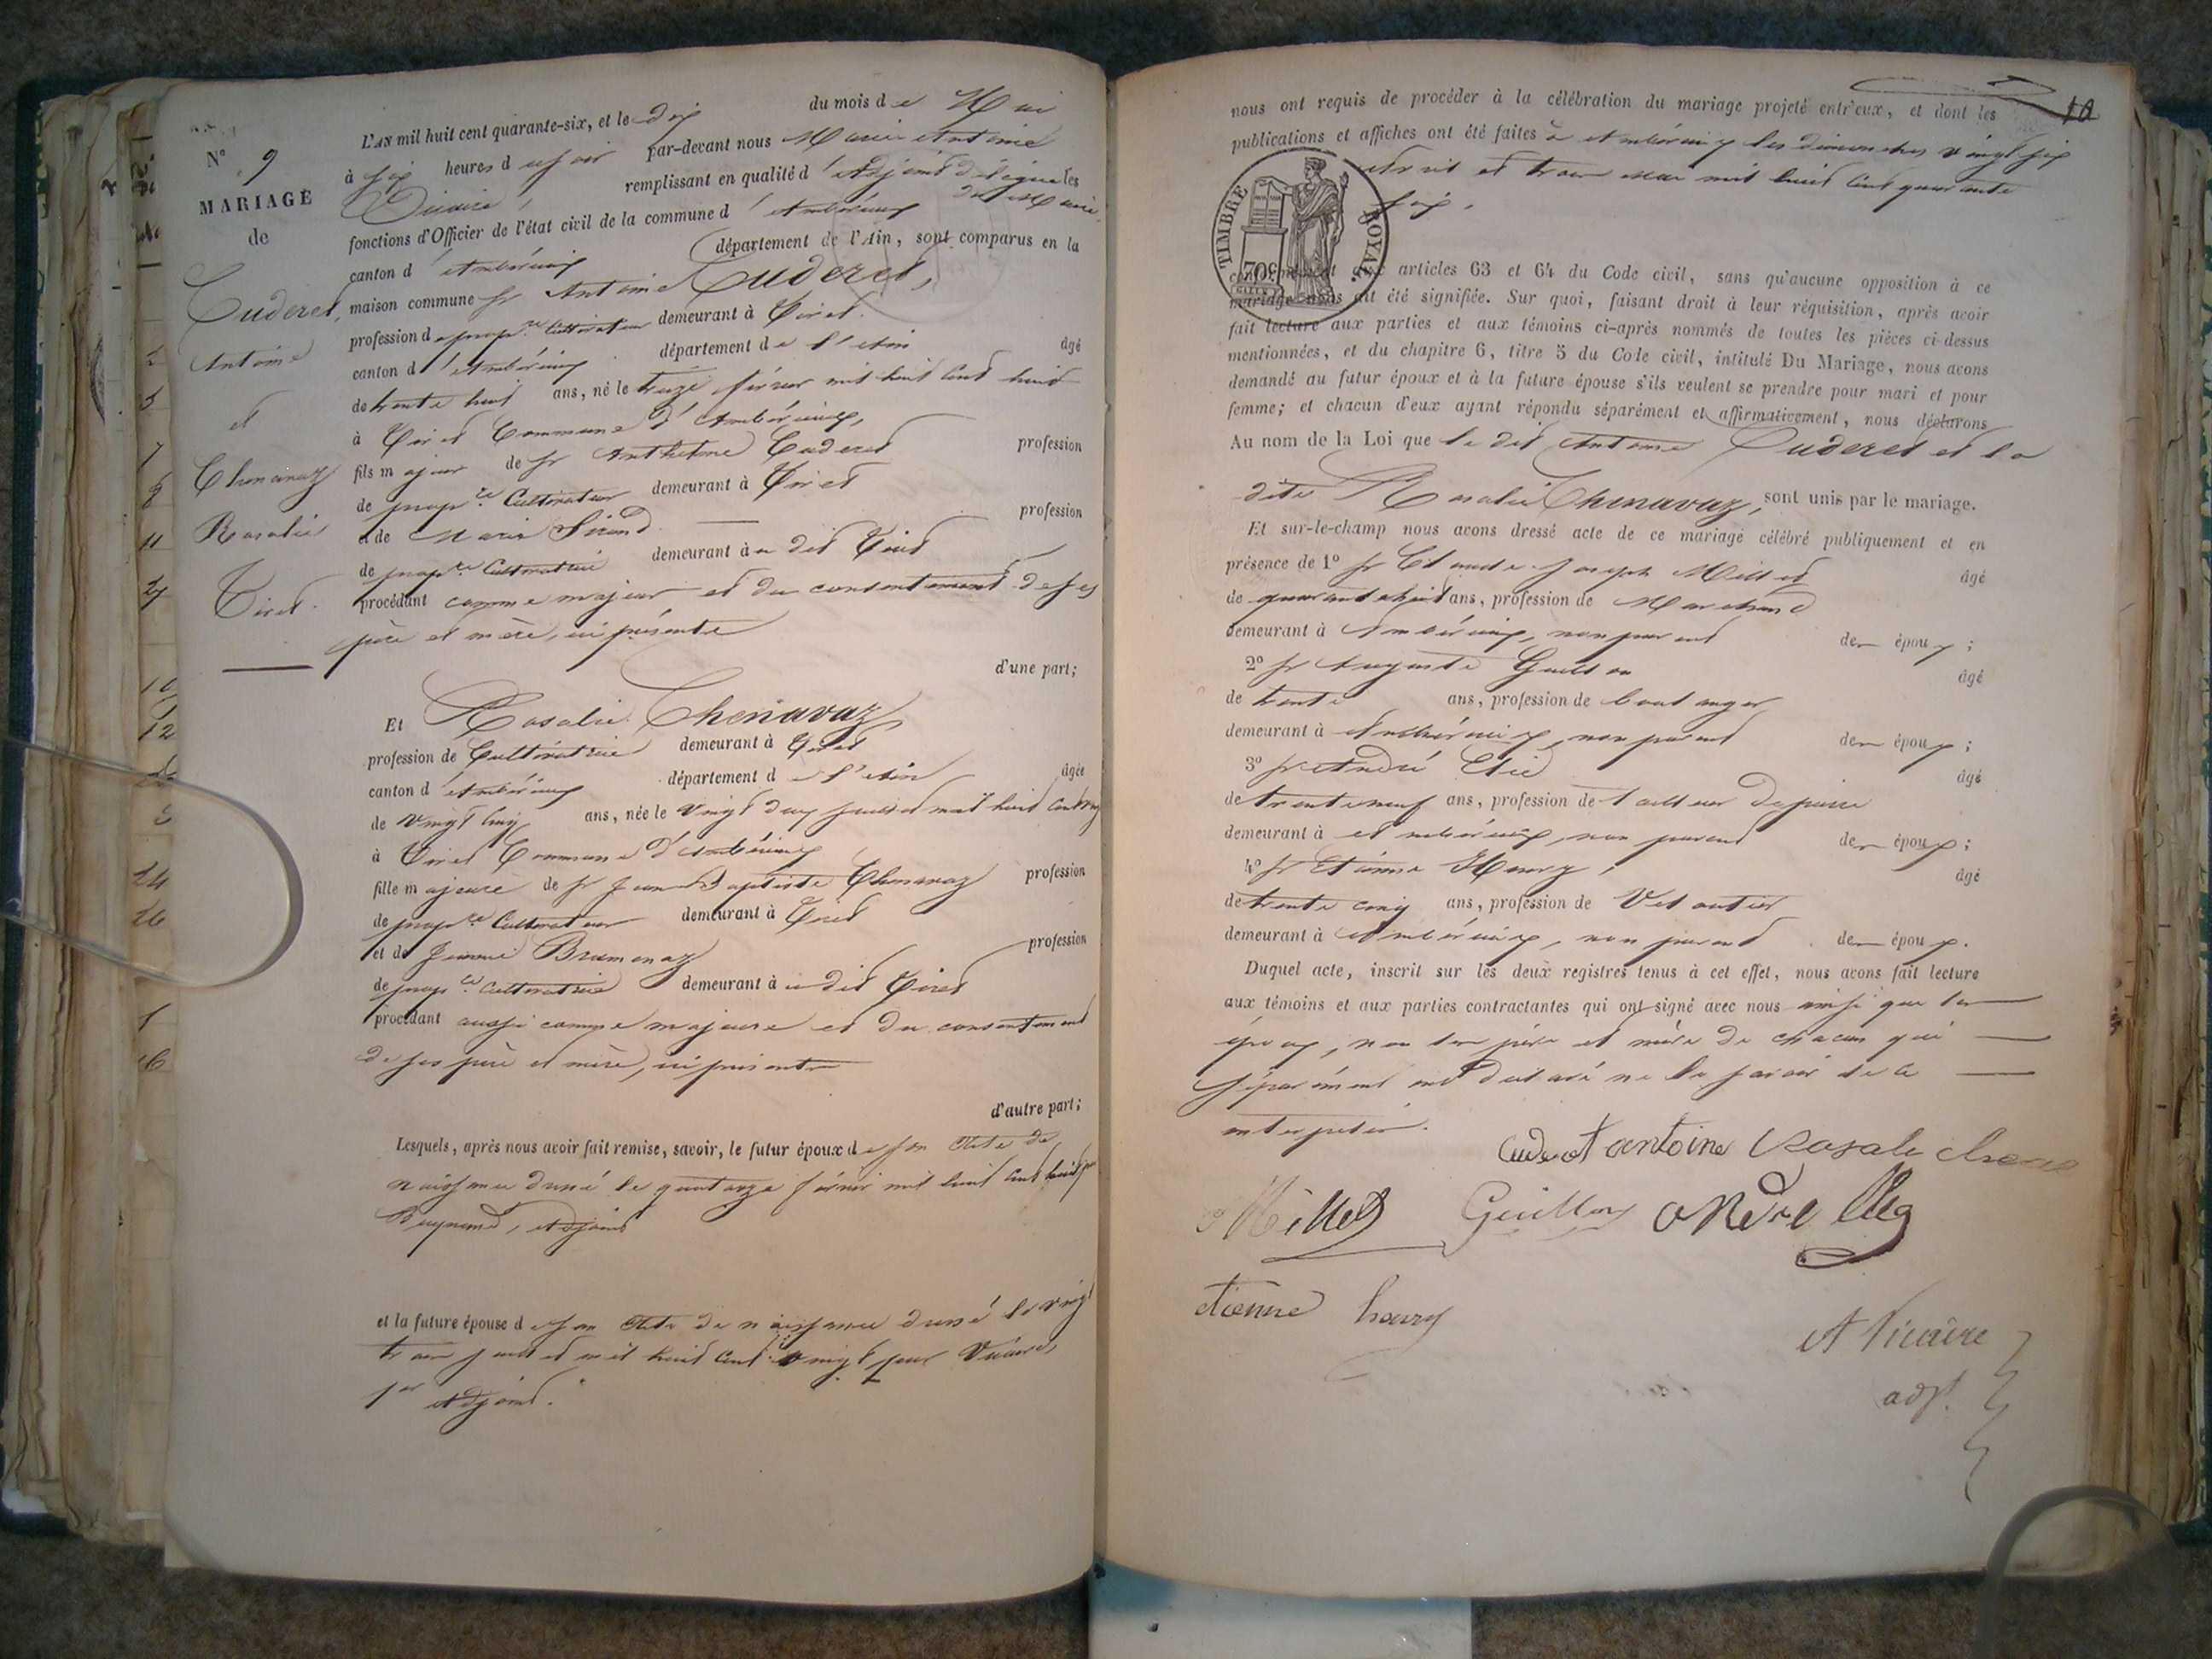 N° 9
MARIAGE
de
Cuderet,
Antoine
et
Chenavaz
Rosalie
L'AN mil huit cent quarante-six, et le dix du mois de Mai
à six heures du soir par-devant nous Marie Antoine
remplissant en qualité d'Adjoint délégué les
fonctions d'Officier de l'état civil de la commune d'Ambérieux
canton d'Ambérieux département de l'Ain, sont comparus en la
maison commune sr Antoine Cuderet,
profession de prop.re Cultivateur demeurant à
canton d'Ambérieux département de l'Ain âgé
de trente huit ans, né le treize février mil huit cent huit
à Commune d'Ambérieux,
fils majeur de sr Anthelme Cuderet profession
de prop.re Cultivateur demeurant à
et de Marie Sirand profession
de prop.re Cultivatrice demeurant au dit
procédant comme majeur et du consentement de ses
père et mère, ici présents
d'une part;
Et Rosalie Chenavaz
profession de Cultivatrice demeurant à
canton d'Ambérieux département de l'Ain âgée
de vingt cinq ans, née le vingt deux juillet mil huit cent vingt
à Commune d'Ambérieux
fille majeure de sr Jean Baptiste Chenavaz profession
de prop.re Cultivateur demeurant à
et de Jeanne Bramenaz profession
de prop.re Cultivatrice demeurant au dit
procédant aussi comme majeure et du consentement
de ses père et mère, ici présents
d'autre part;
Lesquels, après nous avoir fait remise, savoir, le futur époux de son Acte de
naissance dressé le quatorze février mil huit cent huit par
Adjoint
et la future épouse de son Acte de naissance dressé le vingt
trois juillet mil huit cent vingt par
1er Adjoint.
10
nous ont requis de procéder à la célébration du mariage projeté entr'eux, et dont les
publications et affiches ont été faites à Ambérieux les dimanches vingt six
avril et trois mai mil huit cent quarante
six.
TIMBRE ROYAL.
70 c
articles 63 et 64 du Code civil, sans qu'aucune opposition à ce
mariage nous ait été signifiée. Sur quoi, faisant droit à leur réquisition, après avoir
fait lecture aux parties et aux témoins ci-après nommés de toutes les pièces ci-dessus
mentionnées, et du chapitre 6, titre 5 du Code civil, intitulé Du Mariage, nous avons
demandé au futur époux et à la future épouse s'ils veulent se prendre pour mari et pour
femme; et chacun d'eux ayant répondu séparément et affirmativement, nous déclarons
Au nom de la Loi que le dit Antoine Cuderet et la
dite Rosalie Chenavaz, sont unis par le mariage.
Et sur-le-champ nous avons dressé acte de ce mariage célébré publiquement et en
présence de 1° sr Claude Joseph Millet âgé
de quarante huit ans, profession de Marchand
demeurant à Ambérieux, non parent des époux;
2° sr Auguste Guillon âgé
de trente ans, profession de boulanger
demeurant à Ambérieux, non parent des époux;
3° sr André Elie âgé
de trente neuf ans, profession de tailleur de pierre
demeurant à Ambérieux, non parent des époux;
4° sr Etienne Houry, âgé
de trente cinq ans, profession de
demeurant à Ambérieux, non parent des époux.
Duquel acte, inscrit sur les deux registres tenus à cet effet, nous avons fait lecture
aux témoins et aux parties contractantes qui ont signé avec nous ainsi que les
époux, non les père et mère de chacun qui
séparément ont déclaré ne le savoir de ce
interpellés.
Cuderet antoine Rosalie chena
Millet Guillon André
etienne houry
A Vicaire
adjt.